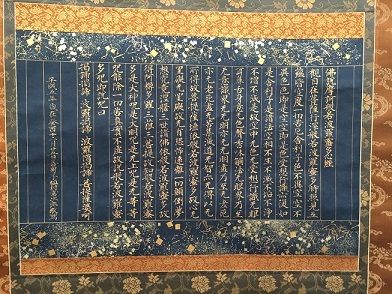 佛說摩訶般若波羅蜜多心經
觀自在菩薩行深般若波羅蜜多時照見五
蘊皆空度一切苦厄舍利子色不異空空不
異色色即是空空即是色受想行識亦復如
是舍利子是諸法空相不生不滅不垢不淨
不增不減是故空中无色无受想行識无眼
耳鼻舌身意无色聲香味觸法无眼界乃至
无意識界无无明亦无无明盡乃至无老死
亦无老死盡无苦集滅道无智亦无得以无
所得故菩提薩埵依般若波羅蜜多故心无
罣礙无罣礙故无有恐怖遠離一切顛倒夢
想究竟涅槃三世諸佛依般若波羅蜜多故
得阿耨多羅三藐三菩提故知般若波羅蜜
多是大神呪是大明呪是无上呪是无等等
呪能除一切苦真實不虛故說般若波羅蜜
多呪即說呪曰
揭諦揭諦 波羅揭諦 波羅僧揭諦 菩提薩婆訶
平成九年